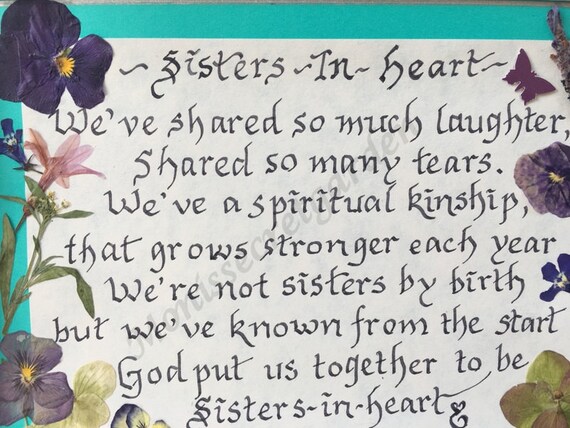 ~ Sisters ~ In ~ Heart ~
We've shared so much laughter,
Shared so many tears.
We've a spiritual kinship,
that grows stronger each year
We're not sisters by birth
but we've known from the start
God put us together to be
Sisters-in-heart
Monissecretgarden